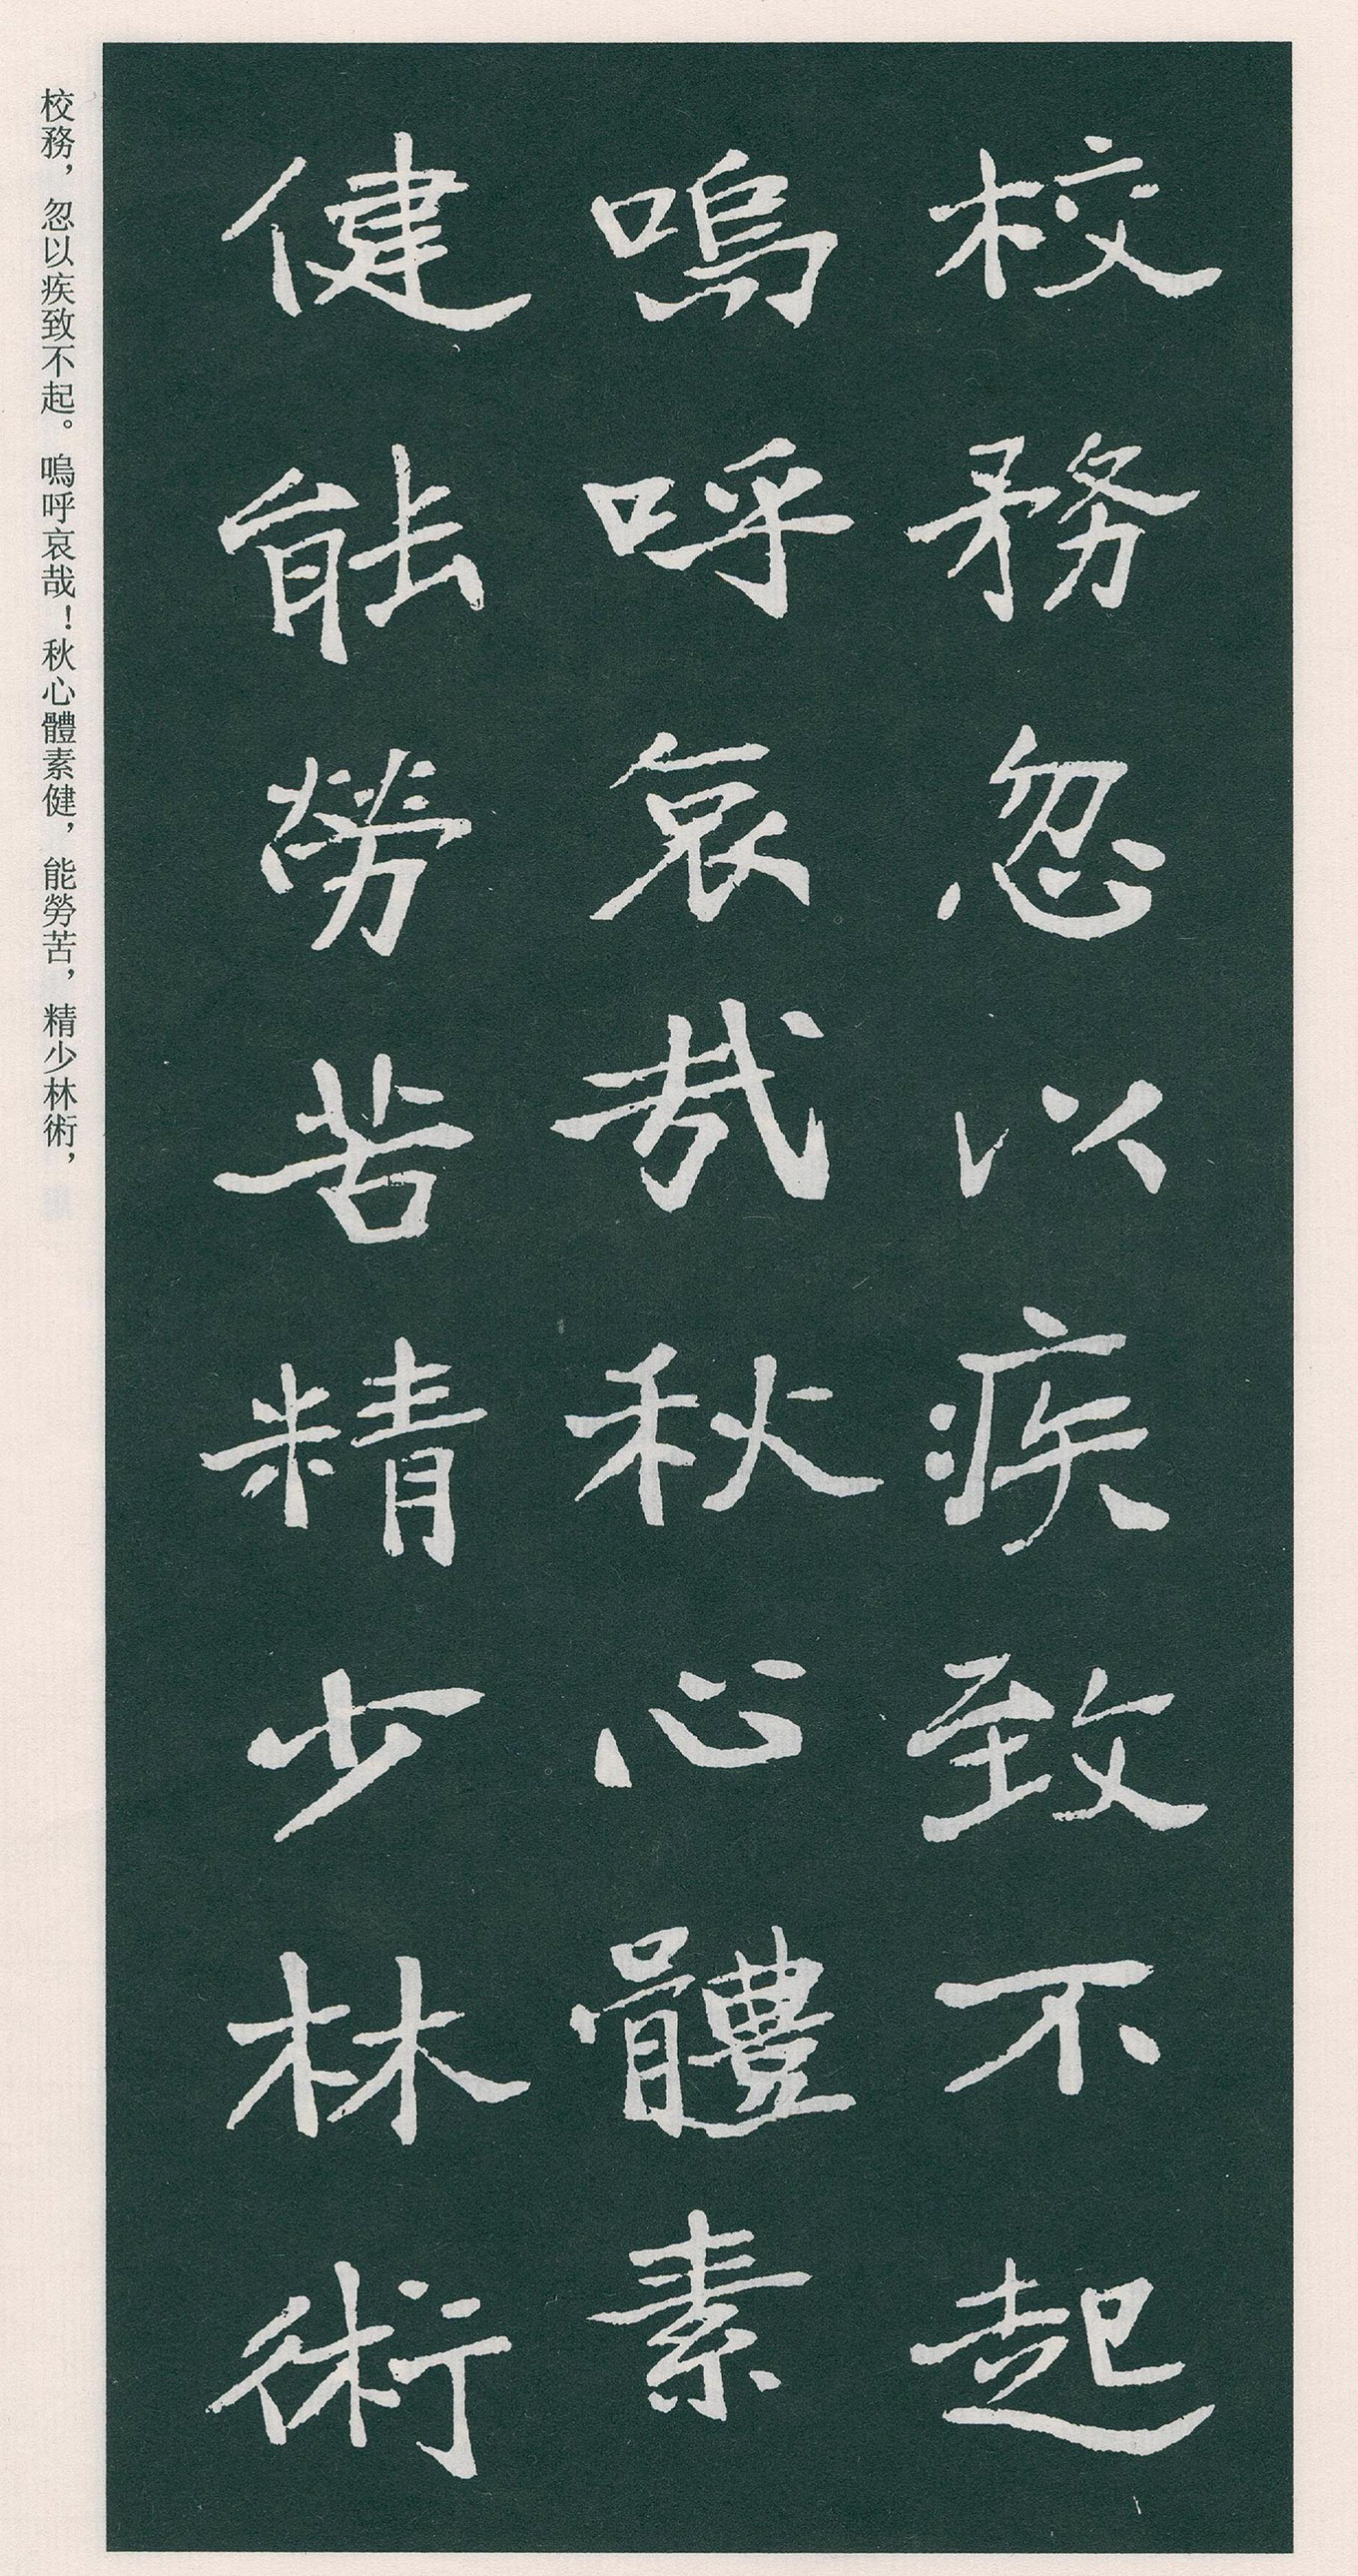 校務忽以疾致不起
嗚呼哀哉秋心體素
健能勞苦精少林術
校務，忽以疾致不起。嗚呼哀哉！秋心體素健，能勞苦，精少林術，